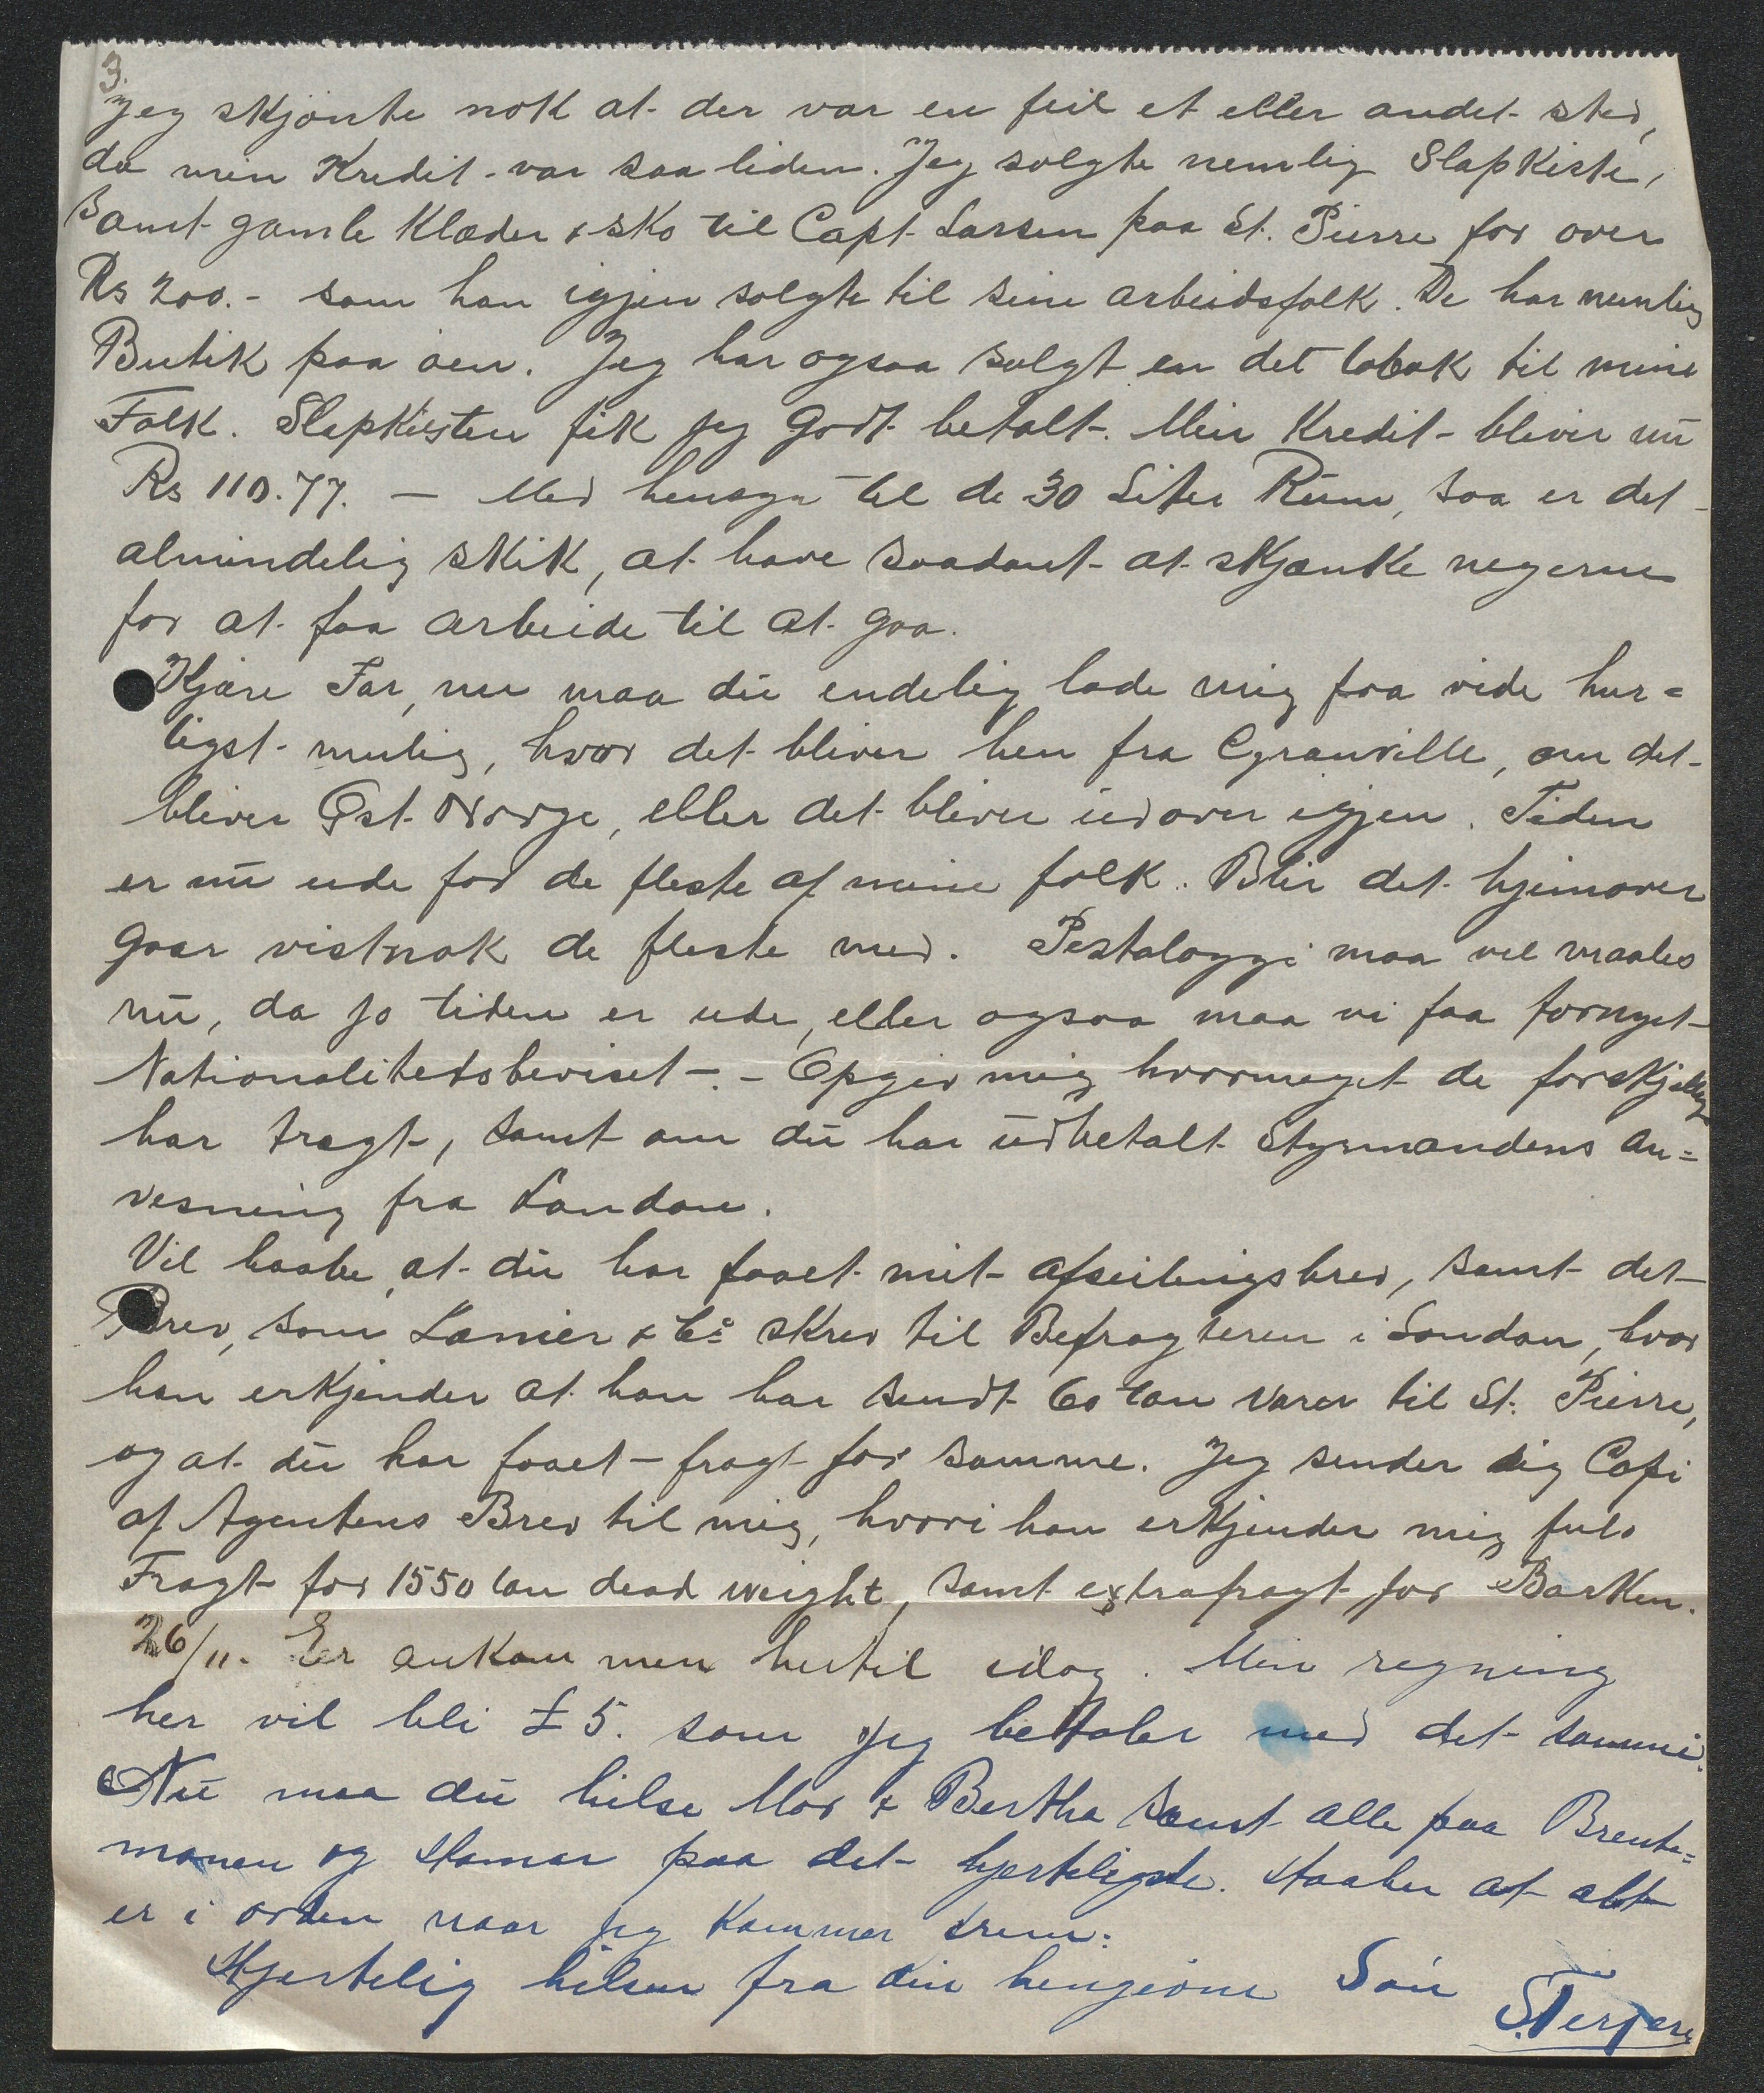 3.
Jeg skjønte nok at der var en feil et eller andet sted,
da min Kredit var saa liden. Jeg solgte nemlig Slapkiste,
samt gamle Klæder & sko til Capt. Larsen paa St. Pierre for over
Rs 200.- som han igjen solgte til sine arbeidsfolk. De har nemlig
Butik paa øen. Jeg har ogsaa solgt en det tobak til mine
Folk. Slapkisten fik jeg godt betalt. Min Kredit bliver nu
Rs 110.77. — Med hensyn til de 30 Liter Rum, saa er det
almindelig skik, at have saadant at skjænke negerne
for at faa arbeide til at gaa.
Kjære Far, nu maa du endelig lade mig faa vide hur=
tigst mulig, hvor det bliver hen fra Granville, om det
bliver Øst Norge, eller det bliver udover igjen. Tiden
er nu ude for de fleste af mine folk. Blir det hjemover
gaar vistnok de fleste med. Pestalozzi maa vel maales
nu, da jo tiden er ude, eller ogsaa maa vi faa fornyet
Nationalitetsbeviset. - Opgiv mig hvormeget de forskjellige
har tragt, samt om du har udbetalt Styrmandens An=
visning fra London.
Vil haabe, at du har faaet mit afseilingsbrev, samt det
Brev, som Lanier & Co skrev til Befragteren i London, hvor
han erkjender at han har sendt 60 ton varer til St. Pierre,
og at du har faaet fragt for samme. Jeg sender dig Copi
af Agentens Brev til mig, hvori han erkjender mig fuld
Fragt for 1550 ton dead weight, samt extrafragt for Barken.
26/11. Er ankommen hertil idag. Min regning
her vil bli £ 5. som jeg betaler med det samme.
Nu maa du hilse Mor & Bertha samt alle paa Brente=
manen og Hamar paa det hjerteligste. Haaber at alt
er i orden naar jeg kommer frem.
Hjertelig hilsen fra din hengivne Søn
S. Terjesen